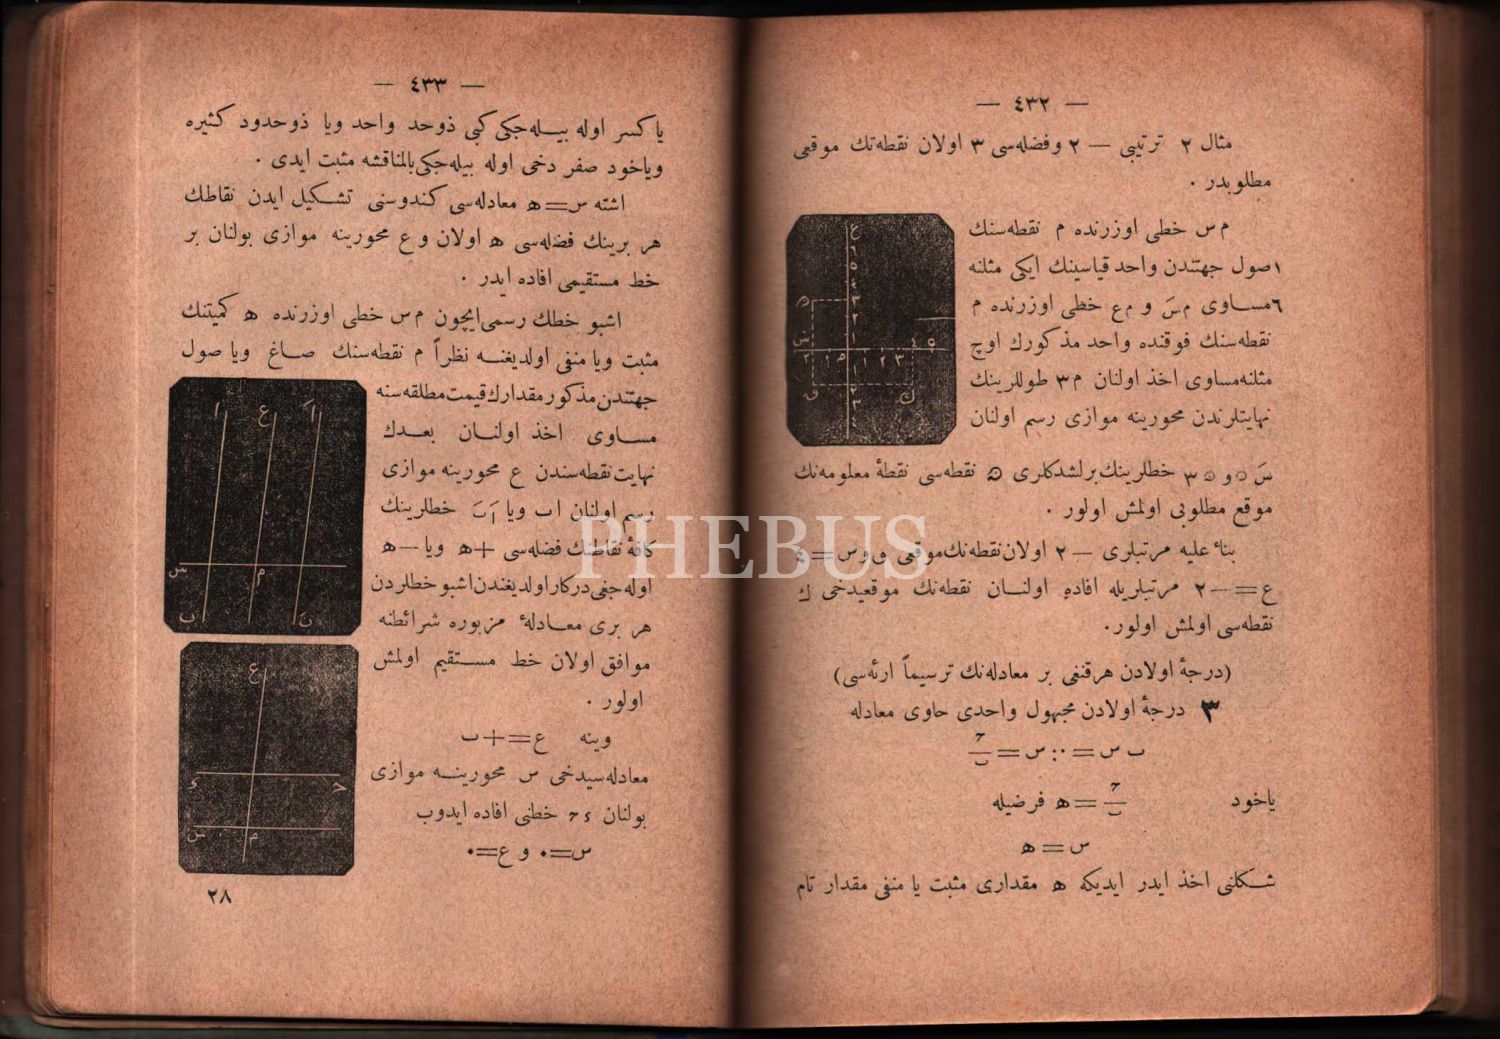 — ٤٣٢ —
مثال ٢ ترتیبی — ٢ وفضله‌سی ٣ اولان نقطه‌نك موقعی
مطلوبدر .
م س خطی اوزرنده م نقطه‌سنك
صول جهتندن واحد قیاسینك ایكی مثلنه
مساوی م سَ و م ع خطی اوزرنده م
نقطه‌سنك فوقنده واحد مذكورك اوچ
مثلنه مساوی اخذ اولنان م ٣ طوللرینك
نهایتلرندن محورینه موازی رسم اولنان
خطلرینك برلشدكلری نقطه‌سی نقطهٔ معلومه‌نك
موقع مطلوبی اولمش اولور .
بناءً علیه مرتبلری — ٢ اولان نقطه‌نك موقعی و س = ٤
ع = — ٢ مرتبلریله افاده اولنـان نقطه‌نك موقعیدخی ك
نقطه‌سی اولمش اولور.
(درجهٔ اولادن هرقنغی بر معادله‌نك ترسیماً ارئه‌سی)
٣ درجهٔ اولادن مجهول واحدی حاوی معادله
یاخود ح/ب = ه فرضیله
س = ه
شـكلنی اخذ ایدر ایدیكه ه مقداری مثبت یا منفی مقدار تام
— ٤٣٣ —
یا كسر اوله بیـله‌جكی كبی ذوحد واحد ویا ذوحدود كثیره
ویاخود صفر دخی اوله بیله‌جكی بالمناقشه مثبت ایدی .
اشته س = ه معادله‌سی كندوسنی تشـكیل ایدن نقاطك
هر برینك فضله‌سی ه اولان و ع محورینه موازی بولنان بر
خط مستقیمی افاده ایدر .
اشبو خطك رسمی ایچون م س خطی اوزرنده ه كمیتنك
مثبت ویا منفی اولدیغنـه نظراً م نقطه‌سنك صـاغ ویا صول
جهتندن مذكور مقدارك قیمت مطلقه‌سنه
مسـاوی اخذ اولنـان بعـدك
نهایت نقطه‌سندن ع محورینه موازی
رسم اولنان ا ب ویا اَ بَ خطلرینك
كافهٔ نقاطنك فضله‌سی + ه ویا — ه
اوله‌جغی دركار اولدیغندن اشبو خطلردن
هر بری معـادلهٔ مزبوره شرائطنه
موافق اولان خط مسـتقیم اولمش
اولور .
وینه ع = + ب
معادله‌سیدخی س محورینـه موازی
بولنان ح د خطنی افاده ایدوب
س = ٠ و ع = ٠
٢٨
PHEBUS